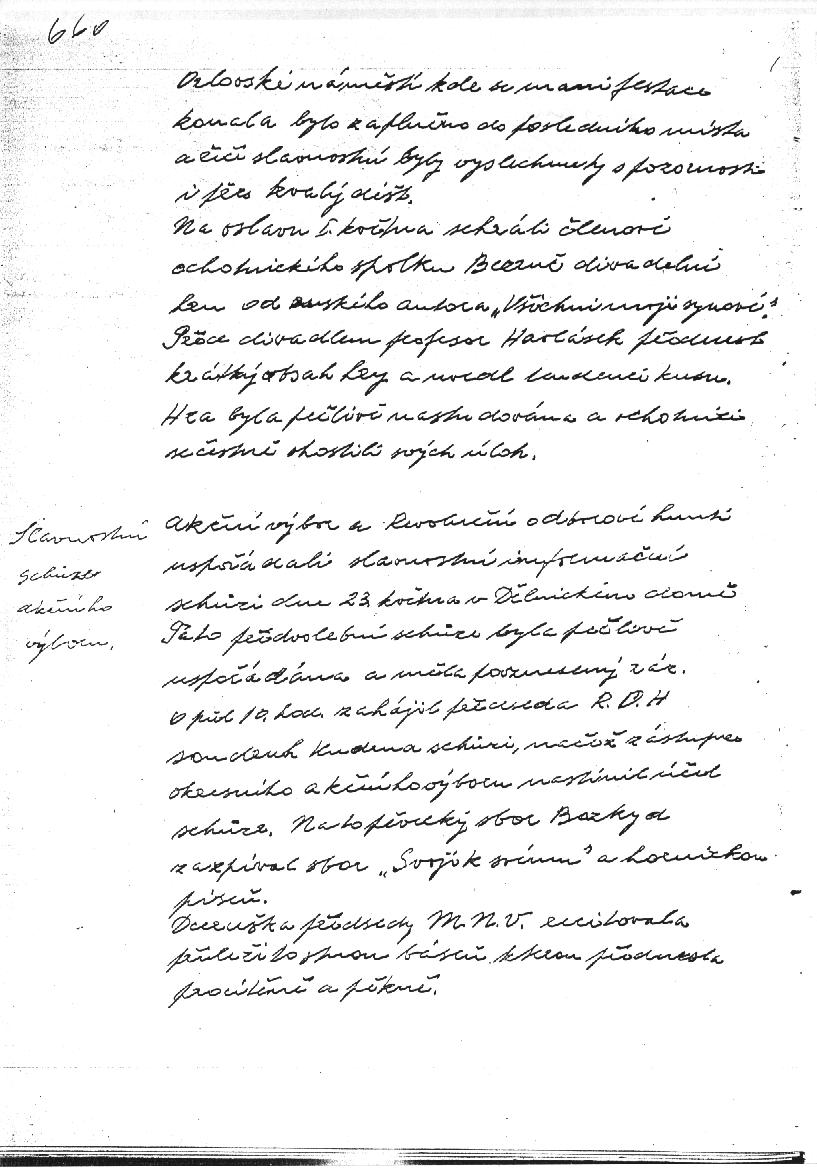 660
Orlovské náměstí kde se manifestace
konala bylo zaplněno do posledního místa
a řeči slavnostní byly vyslechnuty s pozorností
i přes trvalý déšť.
Na oslavu 1. května sehráli členové
ochotnického spolku Bezruč divadelní
hru od ruského autora „Všichni moji synové".
Před divadlem profesor Harlásek přednesl
krátký obsah hry a uvedl tendenci kusu.
Hra byla pečlivě nastudována a ochotníci
se čestně zhostili svých úloh.
Slavnostní
schůze
akčního
výboru.
Akční výbor a Revoluční odborové hnutí
uspořádali slavnostní informační
schůzi dne 23. května v Dělnickém domě
Tato předvolební schůze byla pečlivě
uspořádána a měla povznesený ráz.
O půl 10. hod. zahájil předseda R.O.H
soudruh Kudera schůzi, načež zástupce
okresního akčního výboru nastínil účel
schůze. Na to pěvecký sbor Bazkyd
zazpíval sbor „Svoji k svému" a hornickou
píseň.
Dceruška předsedy M.N.V. recitovala
příležitostnou báseň kterou přednesla
procítěně a pěkně.